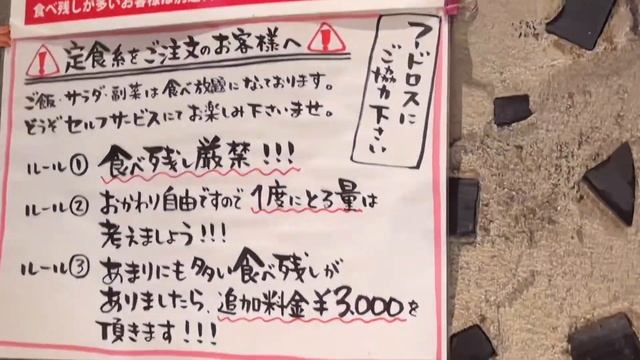 食べ残しが多いお客様は別途
定食系をご注文のお客様へ
ご飯・サラダ・副菜は食べ放題になっております。
どうぞセルフサービスにてお楽しみ下さいませ。
フードロスに
ご協力下さい
ルール① 食べ残し厳禁!!!
ルール② おかわり自由ですので1度にとる量は
考えましょう!!!
ルール③ あまりにも多い食べ残しが
ありましたら、追加料金¥3.000を
頂きます!!!